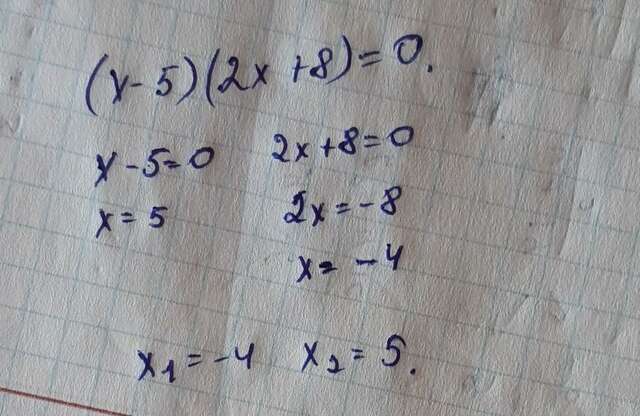 (x-5)(2x+8)=0.
x-5=0 2x+8=0
x=5 2x=-8
x=-4
x₁=-4 x₂=5.